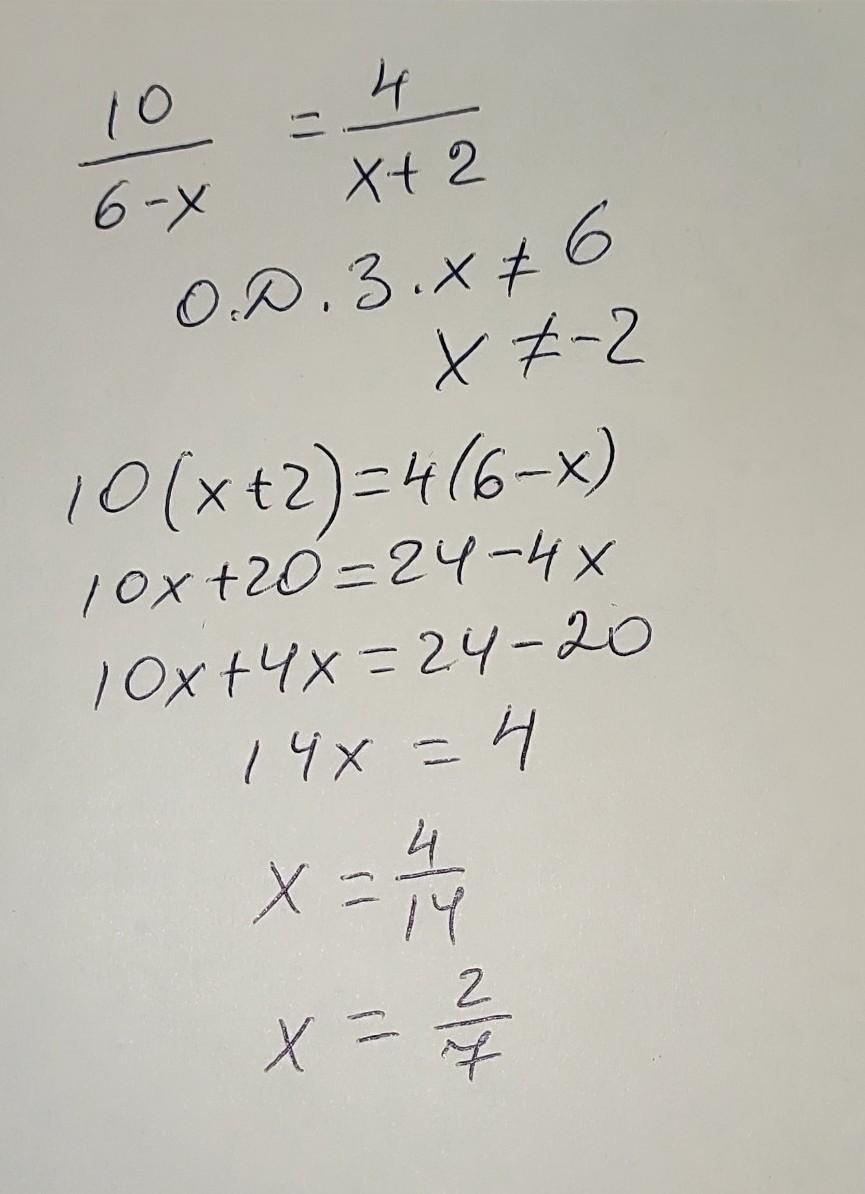 10/(6-x) = 4/(x+2)
О.D.З. x ≠ 6
x ≠ -2
10(x+2)=4(6-x)
10x+20=24-4x
10x+4x=24-20
14x = 4
x = 4/14
x = 2/7